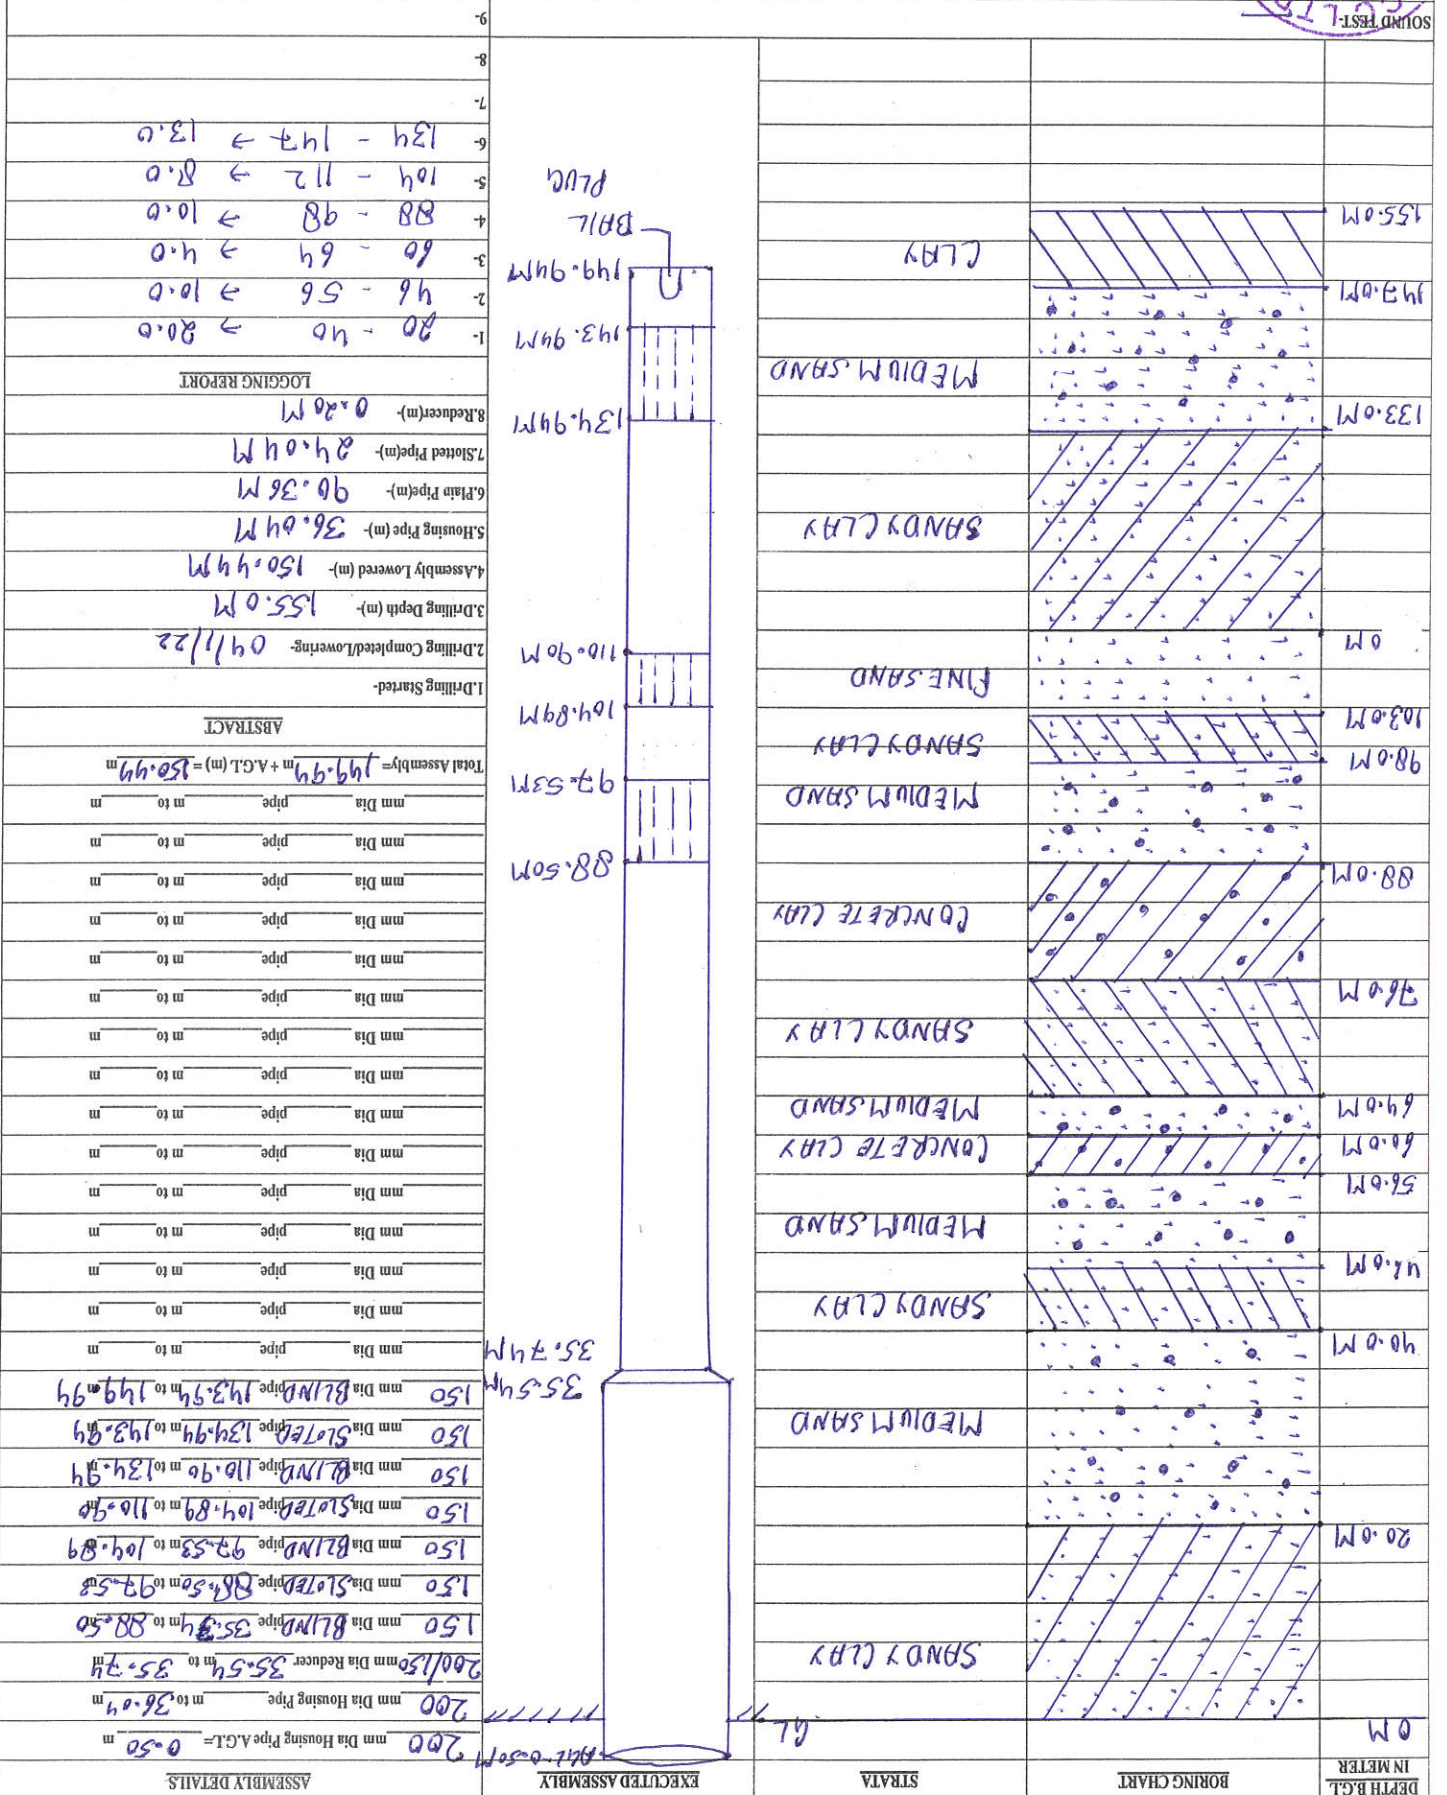 DEPTH B.G.L IN METER
BORING CHART
STRATA
EXECUTED ASSEMBLY
ASSEMBLY DETAILS
0 M
20.0 M
40.0 M
56.0 M
60.0 M
64.0 M
76.0 M
88.0 M
98.0 M
103.0 M
0 M
133.0 M
147.0 M
155.0 M
GL
SANDY CLAY
MEDIUM SAND
SANDY CLAY
MEDIUM SAND
CONCRETE CLAY
MEDIUM SAND
SANDY CLAY
CONCRETE CLAY
MEDIUM SAND
SANDY CLAY
FINE SAND
SANDY CLAY
MEDIUM SAND
CLAY
AGL-0.50M
35.54M
35.74M
88.50M
97.53M
104.89M
110.90M
134.94M
143.94M
149.94M
BAIL
PLUG
200 mm Dia Housing Pipe A.G.L= 0.50 m
200 mm Dia Housing Pipe m to 36.04 m
200/150 mm Dia Reducer 35.54 m to 35.74 m
150 mm Dia BLIND pipe 35.74 m to 88.50 m
150 mm Dia SLOTED pipe 88.50 m to 97.53 m
150 mm Dia BLIND pipe 97.53 m to 104.89 m
150 mm Dia SLOTED pipe 104.89 m to 110.90 m
150 mm Dia BLIND pipe 110.90 m to 134.94 m
150 mm Dia SLOTED pipe 134.94 m to 143.94 m
150 mm Dia BLIND pipe 143.94 m to 149.94 m
mm Dia pipe m to m
mm Dia pipe m to m
mm Dia pipe m to m
mm Dia pipe m to m
mm Dia pipe m to m
mm Dia pipe m to m
mm Dia pipe m to m
mm Dia pipe m to m
mm Dia pipe m to m
mm Dia pipe m to m
mm Dia pipe m to m
mm Dia pipe m to m
mm Dia pipe m to m
mm Dia pipe m to m
mm Dia pipe m to m
Total Assembly= 149.94 m + A.G.L (m) = 150.44 m
ABSTRACT
1.Drilling Started-
2.Drilling Completed/Lowering- 04/1/22
3.Drilling Depth (m)- 155.0 M
4.Assembly Lowered (m)- 150.44 M
5.Housing Pipe (m)- 36.04 M
6.Plain Pipe(m)- 90.36 M
7.Slotted Pipe(m)- 24.04 M
8.Reducer(m)- 0.20 M
LOGGING REPORT
1- 20 - 40 → 20.0
2- 46 - 56 → 10.0
3- 60 - 64 → 4.0
4- 88 - 98 → 10.0
5- 104 - 112 → 8.0
6- 134 - 147 → 13.0
7-
8-
9-
SOUND TEST-